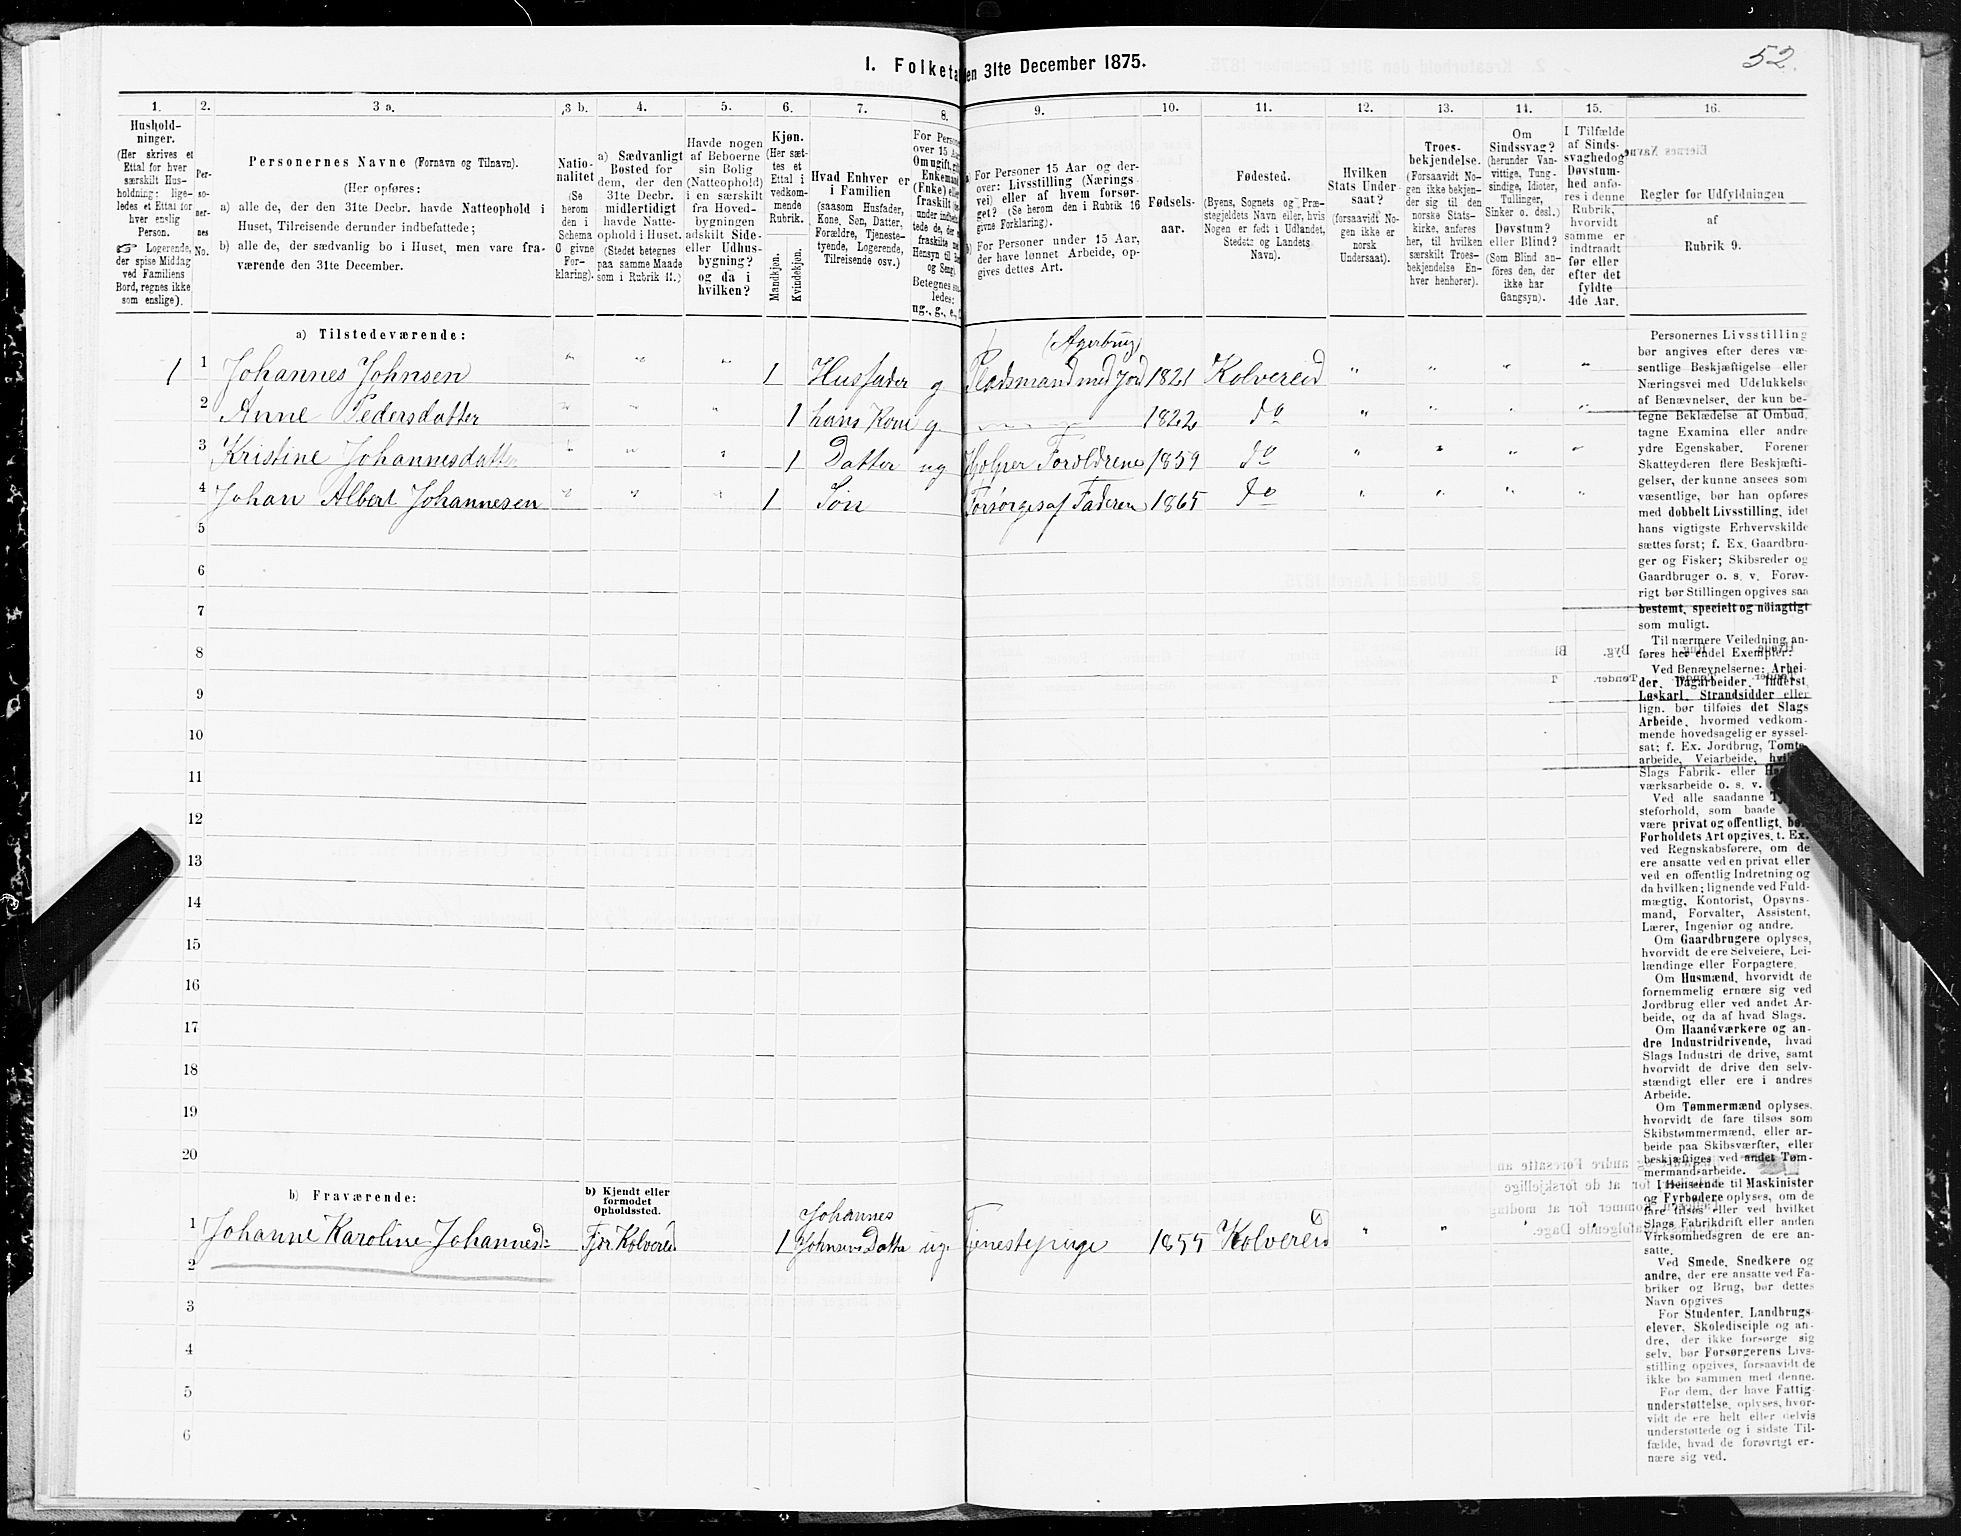 52.
I. Folketa
en 31te December 1875.
1.
2.
3 a.
3 b.
4.
5.
6.
7.
8.
9.
10.
11.
12.
13.
14.
15.
16.
Hushold-
ninger.
(Her skrives et
Ettal for hver
særskilt Hus-
holdning; lige-
ledes et Ettal for
hver enslig
Person.
☞ Logerende,
der spise Middag
ved Familiens
Bord, regnes ikke
som enslige).
Per-
so-
ner-
nes
No.
Personernes Navne (Fornavn og Tilnavn).
(Her opføres:
a) alle de, der den 31te Decbr. havde Natteophold i
Huset, Tilreisende derunder indbefattede;
b) alle de, der sædvanlig bo i Huset, men vare fra-
værende den 31te December.
Natio-
nalitet
(Se
herom
den i
Schema
C givne
For-
klaring).
a) Sædvanligt
Bosted for
dem, der den
31te Decbr.
midlertidigt
havde Natte-
ophold i Huset.
(Stedet betegnes
paa samme Maade
som i Rubrik 11.)
Havde nogen
af Beboerne
sin Bolig
(Natteophold)
i en særskilt
fra Hoved-
bygningen
adskilt Side-
eller Udhus-
bygning?
og da i
hvilken?
Kjøn.
(Her sæt-
tes et
Ettal i
vedkom-
mende
Rubrik.
Mandkjøn.
Kvindekjøn.
Hvad Enhver er
i Familien
(saasom Husfader,
Kone, Søn, Datter,
Forældre, Tjeneste-
tyende, Logerende,
Tilreisende osv.)
For Perso
over 15 Aa
Om ugift, gi
Enkemand
(Enke) elle
fraskilt
under indbe
tede de, der
fraskilte
Hensyn til
og Seng).
Betegnes sa
ledes:
ug., g., e.,
a) For Personer 15 Aar og der-
over: Livsstilling (Nærings-
vei) eller af hvem forsør-
get? (Se herom den i Rubrik 16
givne Forklaring).
b) For Personer under 15 Aar,
der have lønnet Arbeide, op-
gives dettes Art.
Fødsels-
aar.
Fødested.
(Byens, Sognets og Præ-
stegjeldets Navn eller, hvis
Nogen er født i Udlandet,
Stedets og Landets
Navn).
Hvilken
Stats Under-
saat?
(forsaavidt No-
gen ikke er
norsk
Undersaat).
Troes-
bekjendelse.
(Forsaavidt No-
gen ikke bekjen-
der sig til den
norske Stats-
kirke, anføres
her, til hvilken
særskilt Troes-
bekjendelse En-
hver henhører).
Om
Sindssvag?
(herunder Van-
vittige, Tung-
sindige, Idioter,
Tullinger,
Sinker o. desl.)
Døvstum?
eller Blind?
(Som Blind an-
føres den, der
ikke har
Gangsyn).
I Tilfælde
af Sinds-
svaghed og
Døvstum-
hed anfø-
res i denne
Rubrik,
hvorvidt
samme er
indtraadt
før eller
efter det
fyldte
4de Aar.
Regler for Udfyldningen
af
Rubrik 9.
a) Tilstedeværende:
(Agerbrug)
1 1 Johannes Johnsen " " " 1 Husfader g Pladsmand med Jord 1821 Kolvereid " " " "
2 Anne Pedersdatter " " " 1 hans Kone g. 1822 do " " " "
3 Kristine Johannesdatter " " 1 Datter ug Hjelper Forældrene 1859 do " " " "
4 Johan Albert Johannesen " " " 1 Søn Forsørges af Faderen 1865 do " " " "
5
6
7
8
9
10
11
12
13
14
15
16
17
18
19
20
b) Fraværende:
b) Kjendt eller
formodet
Opholdssted.
Johannes
1 Johanne Karoline Johannesd: Kolvereid 1 Johnsens Datter ug. Tjenestepige 1855 Kolvereid " " " "
2
3
4
5
6
Personernes Livsstilling
bør angives efter deres væ-
sentlige Beskjæftigelse eller
Næringsvei med Udelukkelse
af Benævnelser, der kun be-
tegne Beklædelse af Ombud,
tagne Examina eller andre
ydre Egenskaber. Forener
Skatteyderen flere Beskjæfti-
gelser, der kunne ansees som
væsentlige, bør han opføres
med dobbelt Livsstilling, idet
hans vigtigste Erhvervskilde
sættes først; f. Ex. Gaardbru-
ger og Fisker; Skibsreder og
Gaardbruger o. s. v. Forøv-
rigt bør Stillingen opgives saa
bestemt, specielt og nöiagtigt
som muligt.
Til nærmere Veiledning an-
føres her endel Exempler:
Ved Benævnelserne: Arbei-
der, Dagarbeider, Inderst,
Løskarl, Strandsidder eller
lign. bør tilføies det Slags
Arbeide, hvormed vedkom-
mende hovedsagelig er syssel-
sat; f. Ex. Jordbrug, Tomte-
arbeide, Veiarbeide,
Slags Fabrik- eller
værksarbeide o. s. v.
Ved alle saadanne
steforhold, som baade
være privat og offentligt, bør
Forholdets Art opgives, t. Ex.
ved Regnskabsførere, om de
ere ansatte ved en privat eller
ved en offentlig Indretning og
da hvilken; lignende ved Fuld-
mægtig, Kontorist, Opsyns-
mand, Forvalter, Assistent,
Lærer, Ingeniør og andre.
Om Gaardbrugere oplyses,
hvorvidt de ere Selveiere, Lei-
lændinge eller Forpagtere.
Om Husmænd, hvorvidt de
fornemmelig ernære sig ved
Jordbrug eller ved andet Ar-
beide, og da af hvad Slags.
Om Haandværkere og an-
dre Industridrivende, hvad
Slags Industri de drive, samt
hvorvidt de drive den selv-
stændigt eller ere i andres
Arbeide.
Om Tømmermænd oplyses,
hvorvidt de fare tilsøs som
Skibstømmermænd, eller ar-
beide paa Skibsværfter, eller
beskjæftiges ved andet Tøm-
mermandsarbeide.
I Henseende til Maskinister
og Fyrbødere oplyses, om de
fare tilsøs eller ved hvilket
Slags Fabrikdrift eller anden
Virksomhedsgren de ere an-
satte.
Ved Smede, Snedkere og
andre, der ere ansatte ved Fa-
briker og Brug, bør dettes
Navn opgives
For Studenter, Landbrugs-
elever, Skoledisciple og an-
dre, der ikke forsørge sig
selv, bør Forsørgerens Livs-
stilling opgives, forsaavidt de
ikke bo sammen med denne.
For dem, der have Fattig-
understøttelse, oplyses, hvor-
vidt de ere helt eller delvis
understøttede og i sidste Til-
fælde, hvad de forøvrigt er-
nære sig ved.